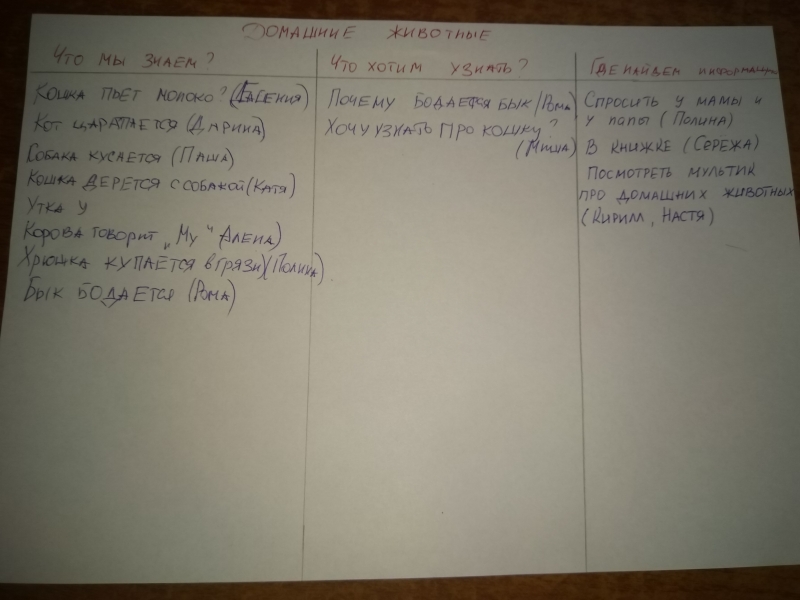 Домашние животные
Что мы знаем?
Кошка пьет молоко? (Евгения)
Кот царапается (Дарина)
Собака кусается (Паша)
Кошка дерется с собакой (Катя)
Утка у
Корова говорит "Му" (Алена)
Хрюшка купается в грязи (Полина)
Бык бодается (Рома)
Что хотим узнать?
Почему бодается бык (Рома)
Хочу узнать про кошку?
(Миша)
Где найдем информацию
Спросить у мамы и
у папы (Полина)
В книжке (Сережа)
Посмотреть мультик
про домашних животных
(Кирилл, Настя)